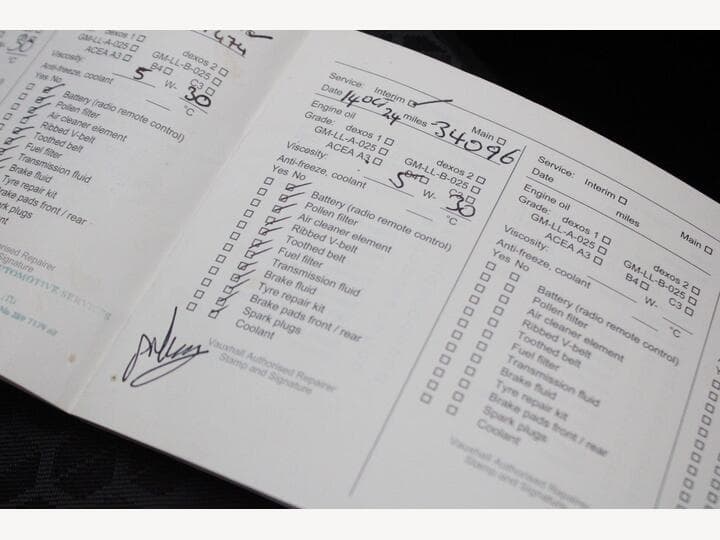 1474
dexos 1
dexos 2
GM-LL-A-025
GM-LL-B-025
ACEA A3
B4
C3
Viscosity:
5 W- 30
Anti-freeze, coolant
°C
Yes No
Battery (radio remote control)
Pollen filter
Air cleaner element
Ribbed V-belt
Toothed belt
Fuel filter
Transmission fluid
Brake fluid
Tyre repair kit
Brake pads front / rear
Spark plugs
Coolant
Service: Interim Main
Date miles 34096
Engine oil
Grade: dexos 1 dexos 2
GM-LL-A-025 GM-LL-B-025
ACEA A3 B4 C3
Viscosity: 5 W- 30
Anti-freeze, coolant °C
Yes No
Battery (radio remote control)
Pollen filter
Air cleaner element
Ribbed V-belt
Toothed belt
Fuel filter
Transmission fluid
Brake fluid
Tyre repair kit
Brake pads front / rear
Spark plugs
Coolant
Vauxhall Authorised Repairer
Stamp and Signature
Service: Interim Main
Date miles
Engine oil
Grade: dexos 1 dexos 2
GM-LL-A-025 GM-LL-B-025
ACEA A3 B4 C3
Viscosity: W-
Anti-freeze, coolant °C
Yes No
Battery (radio remote control)
Pollen filter
Air cleaner element
Ribbed V-belt
Toothed belt
Fuel filter
Transmission fluid
Brake fluid
Tyre repair kit
Brake pads front / rear
Spark plugs
Coolant
Vauxhall Authorised Repairer
Stamp and Signature